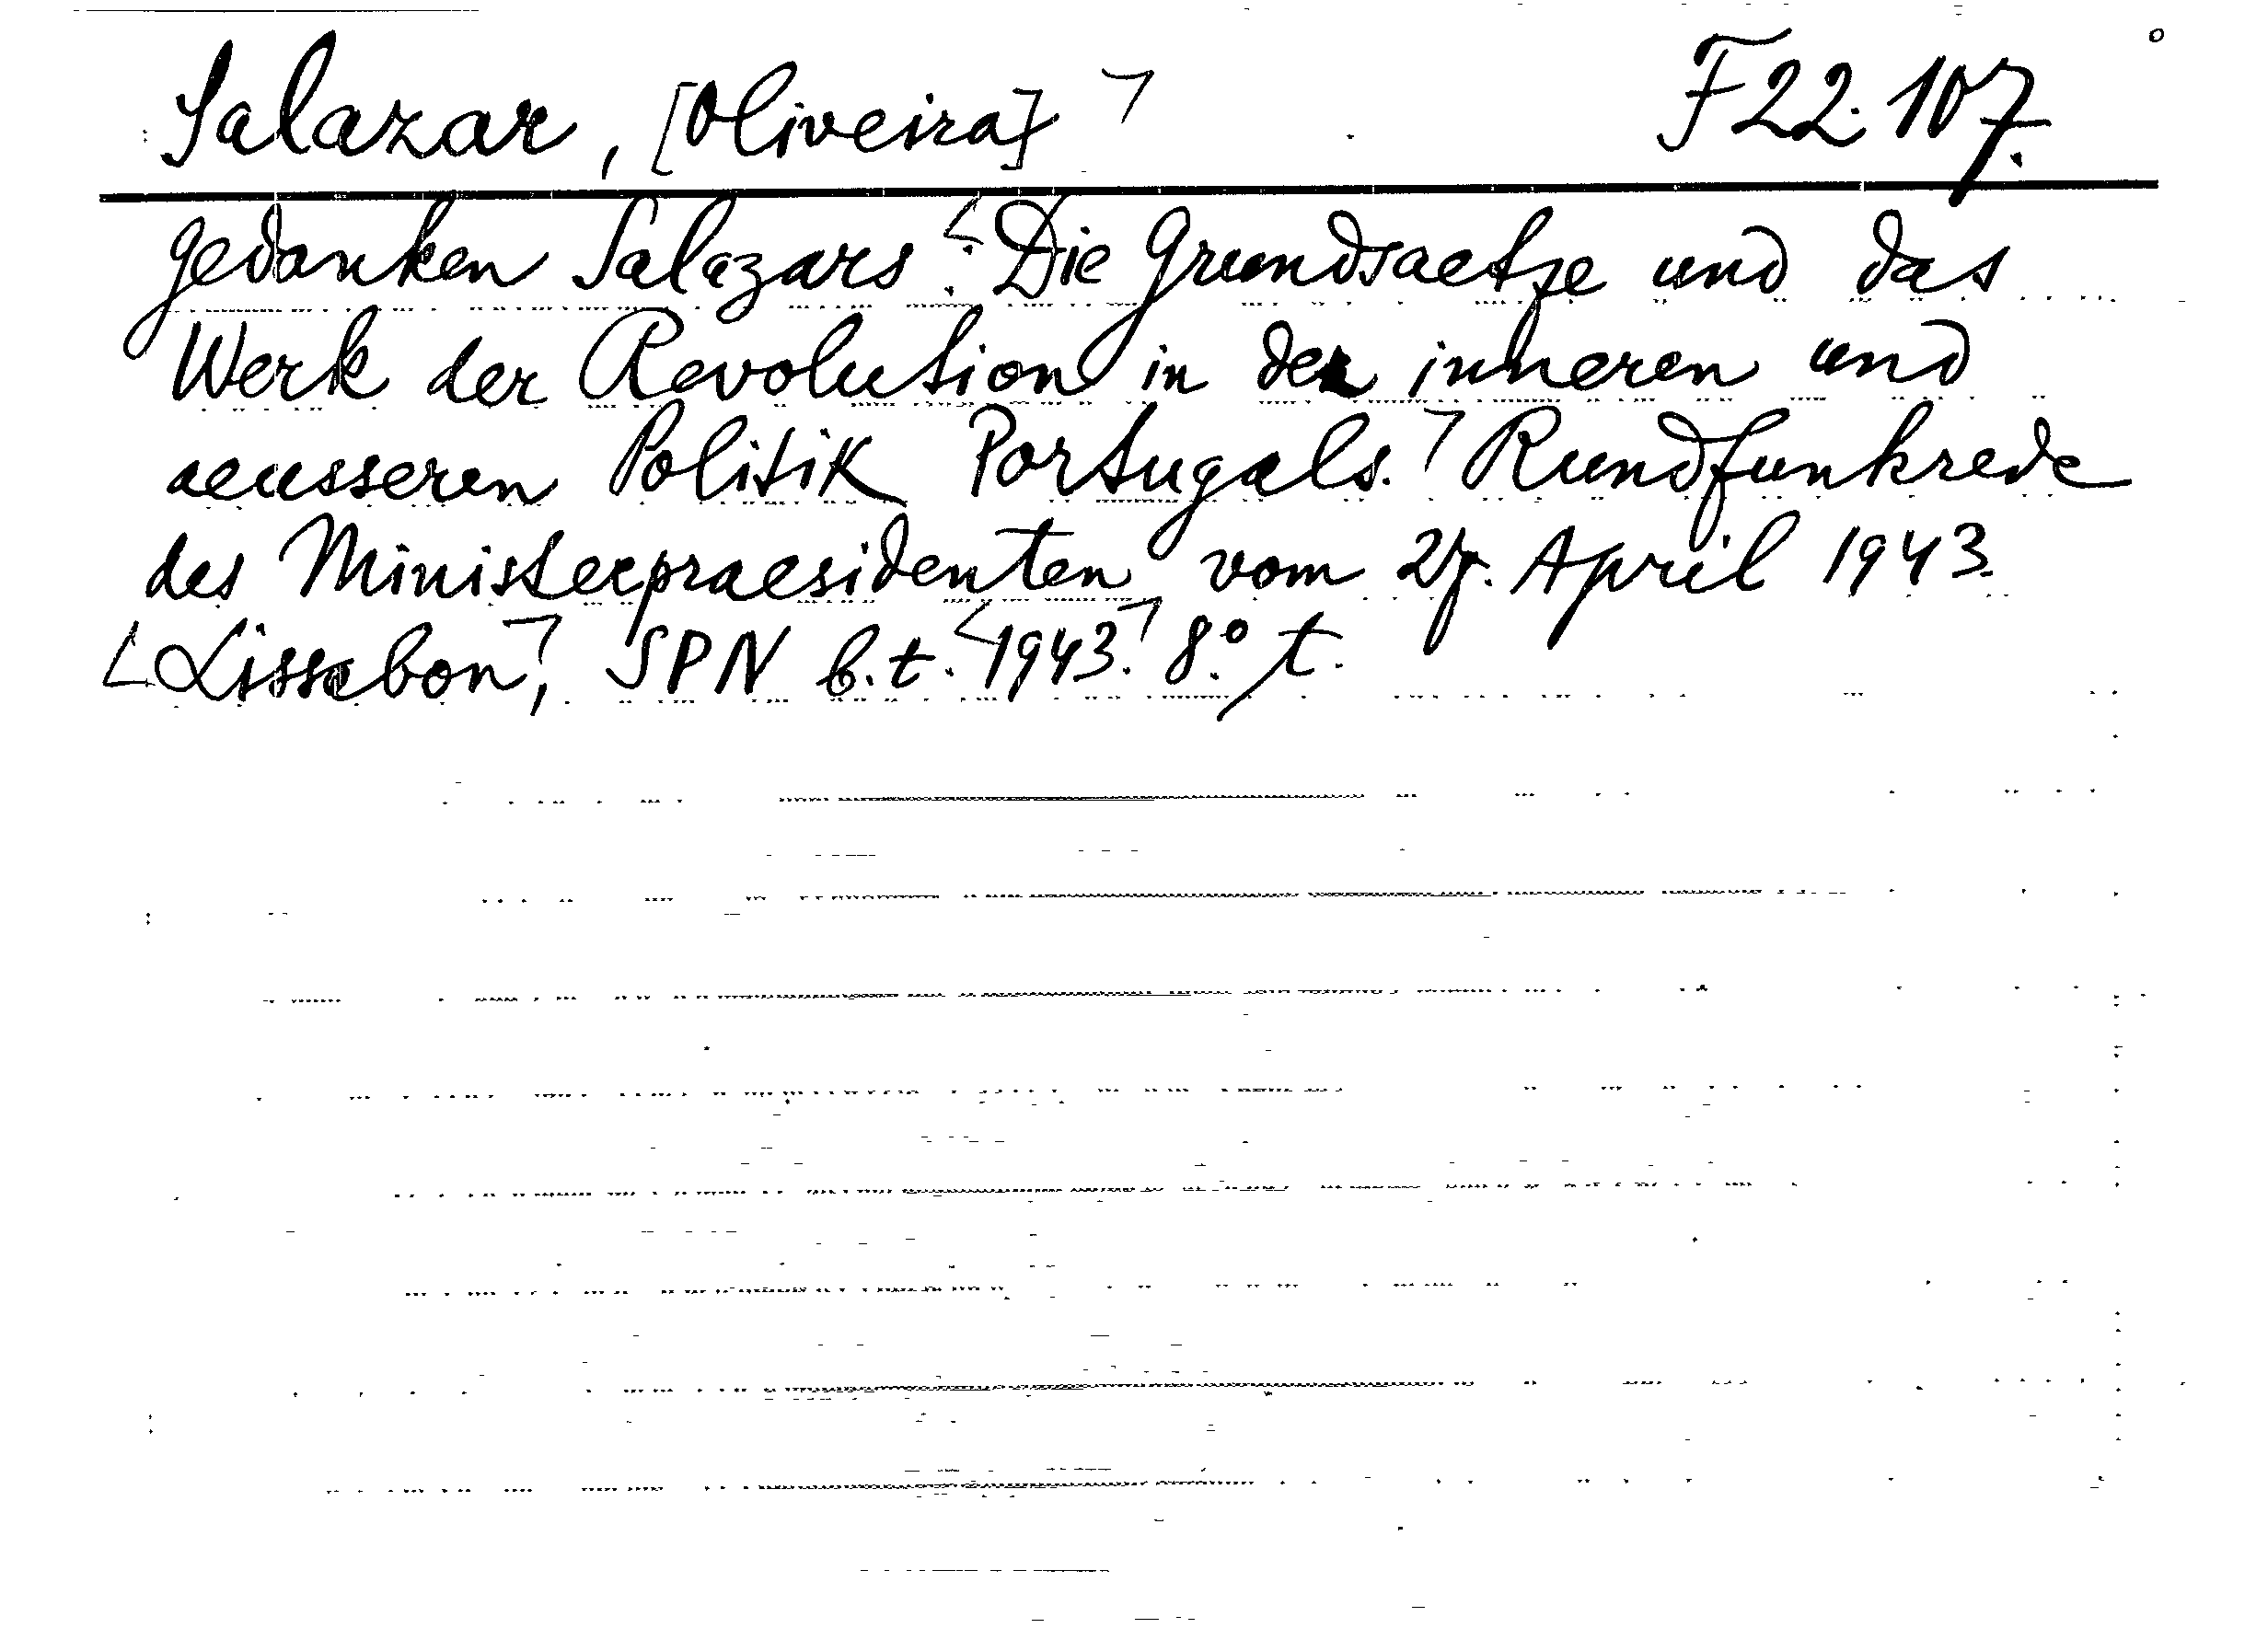 Salazar, [Oliveira] ⌝ F 22.107.
Gedanken Salazars. ⌞Die Grundsaetze und das
Werk der Revolution in der inneren und
aeusseren Politik Portugals.⌝ Rundfunkrede
des Ministerpraesidenten vom 27. April 1943.
⌞Lissabon⌝, SPN b.t. ⌞1943.⌝ 8.° t.